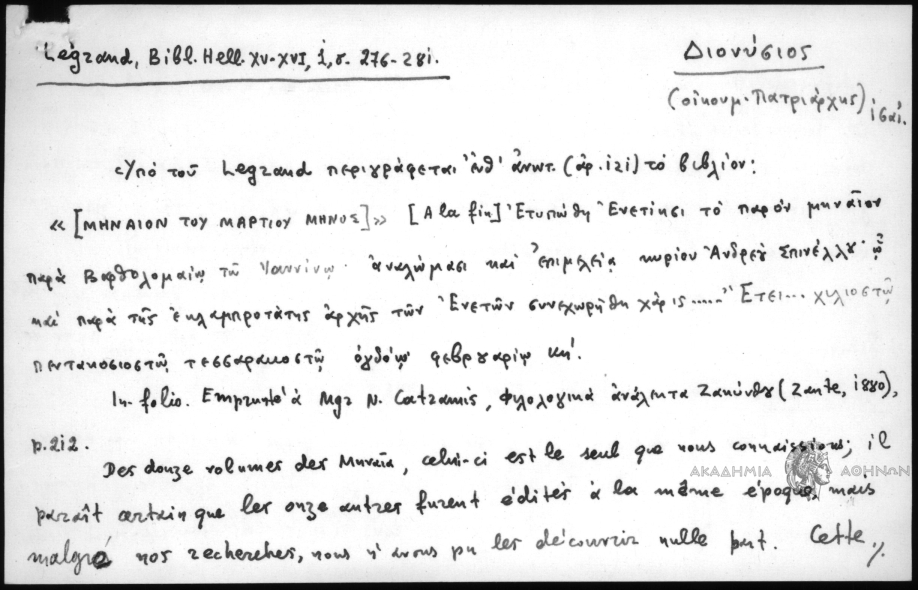 Legrand, Bibl. Hell. XV-XVI, 1, σ. 276-281.
Διονύσιος
(οἰκουμ. Πατριάρχης) 1821.
«Ὑπό τοῦ Legrand περιγράφεται ἐνθ' ἀνωτ. (ἀρ. 121) τό βιβλίον:
«[ΜΗΝΑΙΟΝ ΤΟΥ ΜΑΡΤΙΟΥ ΜΗΝΟΣ]» [A la fin] Ἐτυπώθη Ἐνετίησι τό παρόν μηναῖον
παρά Βαρθολομαίῳ τῷ Ἰαννίνῳ· ἀναλώμασι καί ἐπιμελείᾳ κυρίου Ἀνδρέου Σπινέλλου· ᾧ
καί παρά τῆς ἐκλαμπροτάτης ἀρχῆς τῶν Ἐνετῶν συνεχωρήθη χάρις..... Ἔτει... χιλιοστῷ
πεντακοσιοστῷ τεσσαρακοστῷ ὀγδόῳ φεβρουαρίῳ κη'.
In-folio. Emprunté à Mgr N. Catramis, Φιλολογικά ἀνάλεκτα Ζακύνθου (Zante, 1880),
p. 212.
Des douze volumes des Μηναῖα, celui-ci est le seul que nous connaissions; il
paraît certain que les onze autres furent édités à la même époque, mais
malgré nos recherches, nous n'avons pu les découvrir nulle part. Cette ./.
ΑΚΑΔΗΜΙΑ ΑΘΗΝΩΝ